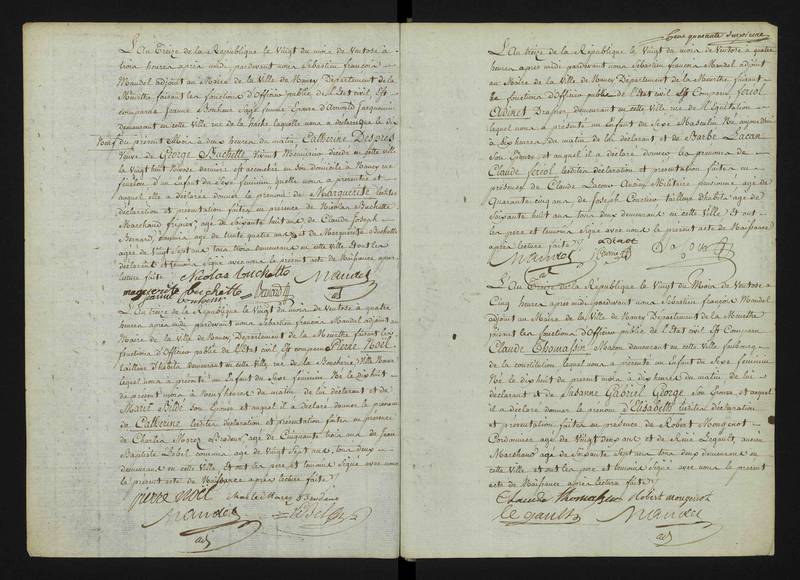 L'An Treize de la République le Vingt du mois de Ventose à
trois heures après midi pardevant nous Sébastien françois
Mandel adjoint au Maire de la Ville de Nancy Département de la
Meurthe faisant les fonctions d'Officier public de l'Etat civil, Est
comparue Jeanne Bonheur Sage femme Epouse d'Arnould Jacquemin
demeurant en cette Ville rue de la hache laquelle nous a déclaré que le dix
Neuf du présent Mois à deux heures du matin Catherine Després
Veuve de George Buchotte Vivant Menuisier décédé en cette ville
le Vingt huit Nivose dernier est accouchée en son domicile à Nancy rue
d'un Enfant du Sexe féminin, quelle nous a présenté et
auquel elle a déclaré donner le prénom de Marguerite lesdites
déclaration et présentation faites en présence de Nicolas Buchotte
Marchand fripier, age de Soixante huit ans de Claude Joseph
Bernard, age de trente quatre ans et de Marguerite Buchotte
agée de Vingt Sept ans tous trois demeurans en cette Ville et ont les
déclarant et témoins Signé avec nous le présent acte de Naissance après
lecture faite Nicolas buchotte Mandel
marguerite buchotte Bernard
bonheur adj
L'An treize de la République le Vingt du mois de ventose à quatre
heures après midi pardevant nous Sébastien françois Mandel adjoint au
Maire de la Ville de Nancy, département de la Meurthe faisant les
fonctions d'Officier public de l'Etat civil Est comparu Pierre Noël
tailleur d'habits demeurant en cette ville rue de la Boucherie Ville Neuve
lequel nous a présenté un Enfant du Sexe féminin Né le dix huit
du présent mois à Neuf heures du matin de lui déclarant et de
Marie Bilde son Epouse et auquel il a déclaré donner le prénom
de Catherine lesdites déclaration et présentation faites en présence
de Charles Marez Brodeur, age de Cinquante trois ans de Jean
Baptiste Lebel commis age de Vingt Sept ans, tous deux
demeurans en cette Ville et ont les pere et temoins Signé avec nous
le présent acte de Naissance après lecture faite
pierre noël Charles Marez
Mandel Lebel
adj
Cent quarante
L'An treize de la République le Vingt du mois de Ventose à quatre
heures après midi pardevant nous Sébastien françois Mandel adjoint
au Maire de la Ville de Nancy Département de la Meurthe faisant
les fonctions d'Officier public de l'Etat civil Est Comparu Feriol
Adinet Drapier, demeurant en cette Ville rue de l'Equitation
lequel nous a présenté un Enfant du Sexe Masculin Né
à Six heures du matin de lui déclarant et de Barbe Lacan
Son Epouse et auquel il a déclaré donner les prénoms de
Claude feriol lesdites declaration et présentation faites en
présence de Claude Lacour Ancien Militaire pensionné age de
Quarante cinq ans de Joseph tailleur d'habits age de
Soixante huit ans tous deux demeurans en cette Ville Et ont
les pere et témoins Signé avec nous le présent acte de Naissance
après lecture faite adinet
Mandel
adj
L'An Treize de la République le Vingt du Mois de Ventose à
Cinq heures après midi pardevant nous Sébastien françois Mandel
adjoint au Maire de la Ville de Nancy Département de la Meurthe
faisant les fonctions d'Officier public de l'Etat civil Est Comparu
Claude Thomassin, Maçon demeurant en cette Ville faubourg
de la constitution lequel nous a présenté un Enfant du Sexe féminin
Né le dix huit du présent mois à dix heures du matin de lui
déclarant et de Susanne Gabriel George Son Epouse et auquel
il a déclaré donner le prénom d'Elisabeth lesdites déclaration
et présentation faites en présence de Robert Mougenot
Cordonnier age de Vingt deux ans et de René Legault, ancien
Marchand age de Soixante Sept ans tous deux demeurans en
cette Ville et ont les pere et témoins Signé avec nous le présent
acte de Naissance après lecture faite
Claude Thomassin Robert mougenot
le gault Mandel
adj